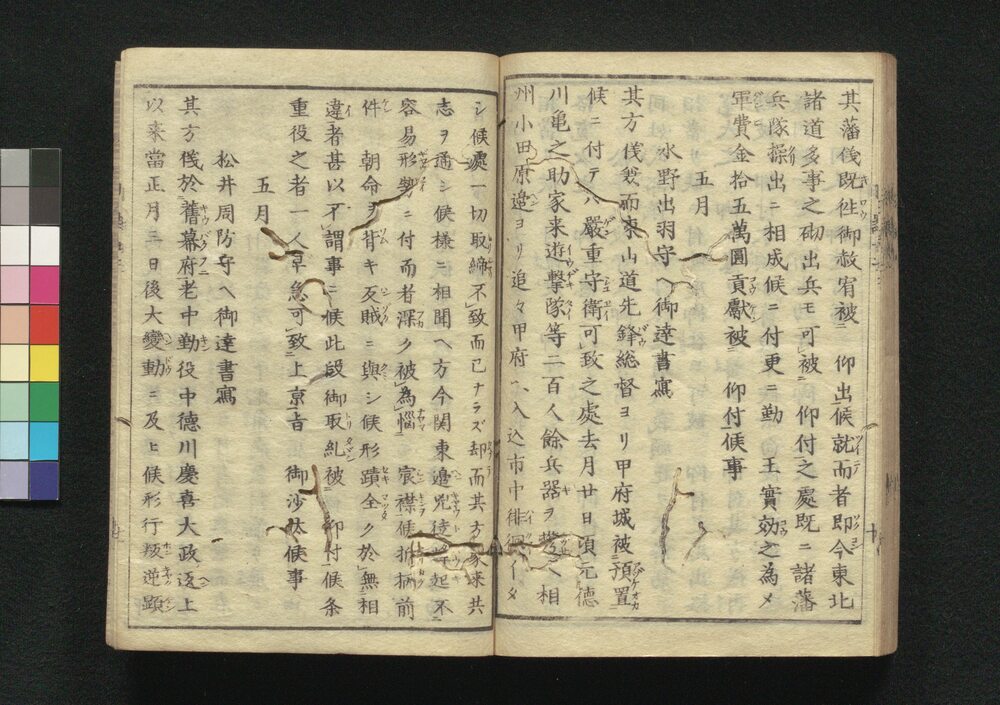 其藩儀既往御赦宥被 仰出候就而者即今東北
諸道多事之砌出兵モ可被 仰付之處既ニ諸藩
兵隊操出ニ相成候ニ付更ニ勤 王實効之為メ
軍費金拾五萬圓貢獻被 仰付候事
五月
水野出羽守ヘ御達書寫
其方儀先而東山道先鋒総督ヨリ甲府城被預置
候ニ付テハ嚴重守衛可致之處去月廿日頃元德
川亀之助家来遊撃隊等二百人餘兵器ヲ携ヘ相
州小田原邉ヨリ追々甲府ヘ入込市中徘徊イタ
シ候處一切取締不致而已ナラズ却而其方家来共
志ヲ通シ候様ニ相聞ヘ方今関東邉兇徒蜂起不
容易形勢ニ付而者深ク被為惱 宸襟候折柄前
件 朝命ヲ背キ反賊ニ與シ候形蹟全ク於無相
違者甚以不謂事ニ候此段御取糺被 仰付候条
重役之者一人早急可致上京旨 御沙汰候事
五月
松井周防守ヘ御達書寫
其方儀於舊幕府老中勤役中德川慶喜大政返上
以来當正月三日後大變動ニ及ヒ候形行叛逆顕